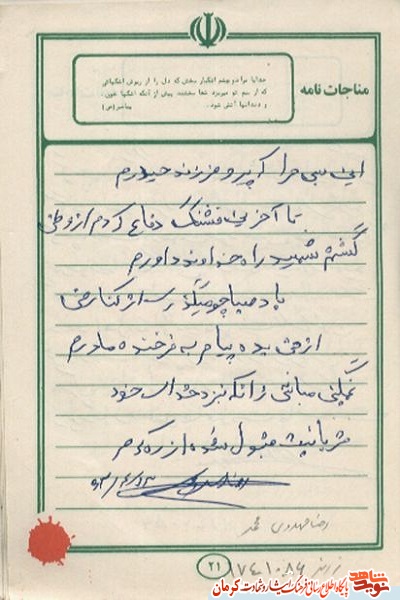 مناجات نامه
خدایا مرا دو چشم اشکبار ببخش که دل را از ریزش اشکهائی
که از بیم تو میریزد شفا بخشند پیش از آنکه اشکها خون،
و دندانها آتش شود.
پیامبر(ص)
این بس مرا که پیرو فرزند حیدرم
تا آخرین فشنگ دفاع کردم از وطن
گشتم شهید راه خداوند داورم
باد صبا چو میگذری از کنار من
از من بده پیام به فرخنده مادرم
غمگین مباش زانکه نزد خدای خود
قربانیت قبول شده از ره کرم
۶۳/۴/۲۳
رضا مهدوی
۲۱
۱۷۴۱۰۸۶
نوید شاهد
پایگاه اطلاع رسانی فرهنگ ایثار و شهادت کرمان